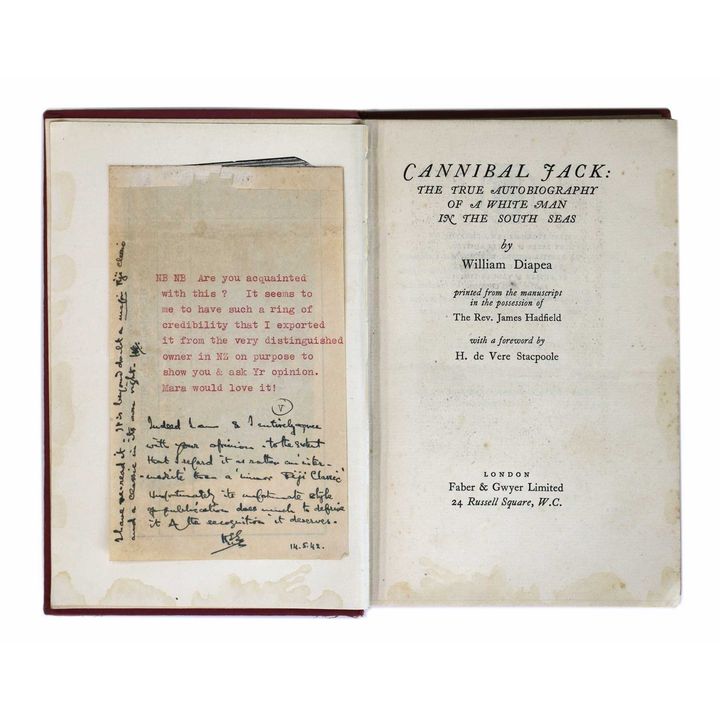 NB NB Are you acquainted
with this ? It seems to
me to have such a ring of
credibility that I exported
it from the very distinguished
owner in NZ on purpose to
show you & ask Yr opinion.
Mara would love it!
V
Indeed I am & I entirely agree
with your opinion - to the extent
that I regard it as rather an inter-
mediate than a 'minor Fiji Classic'
Unfortunately its unfortunate style
of publication does much to deprive
it of the recognition it deserves.
14.5.42.
I have re-read it. It is beyond doubt a major Fiji Classic
and a classic in its own right.
CANNIBAL JACK:
THE TRUE AUTOBIOGRAPHY
OF A WHITE MAN
IN THE SOUTH SEAS
by
William Diapea
printed from the manuscript
in the possession of
The Rev. James Hadfield
with a foreword by
H. de Vere Stacpoole
LONDON
Faber & Gwyer Limited
24 Russell Square, W.C.